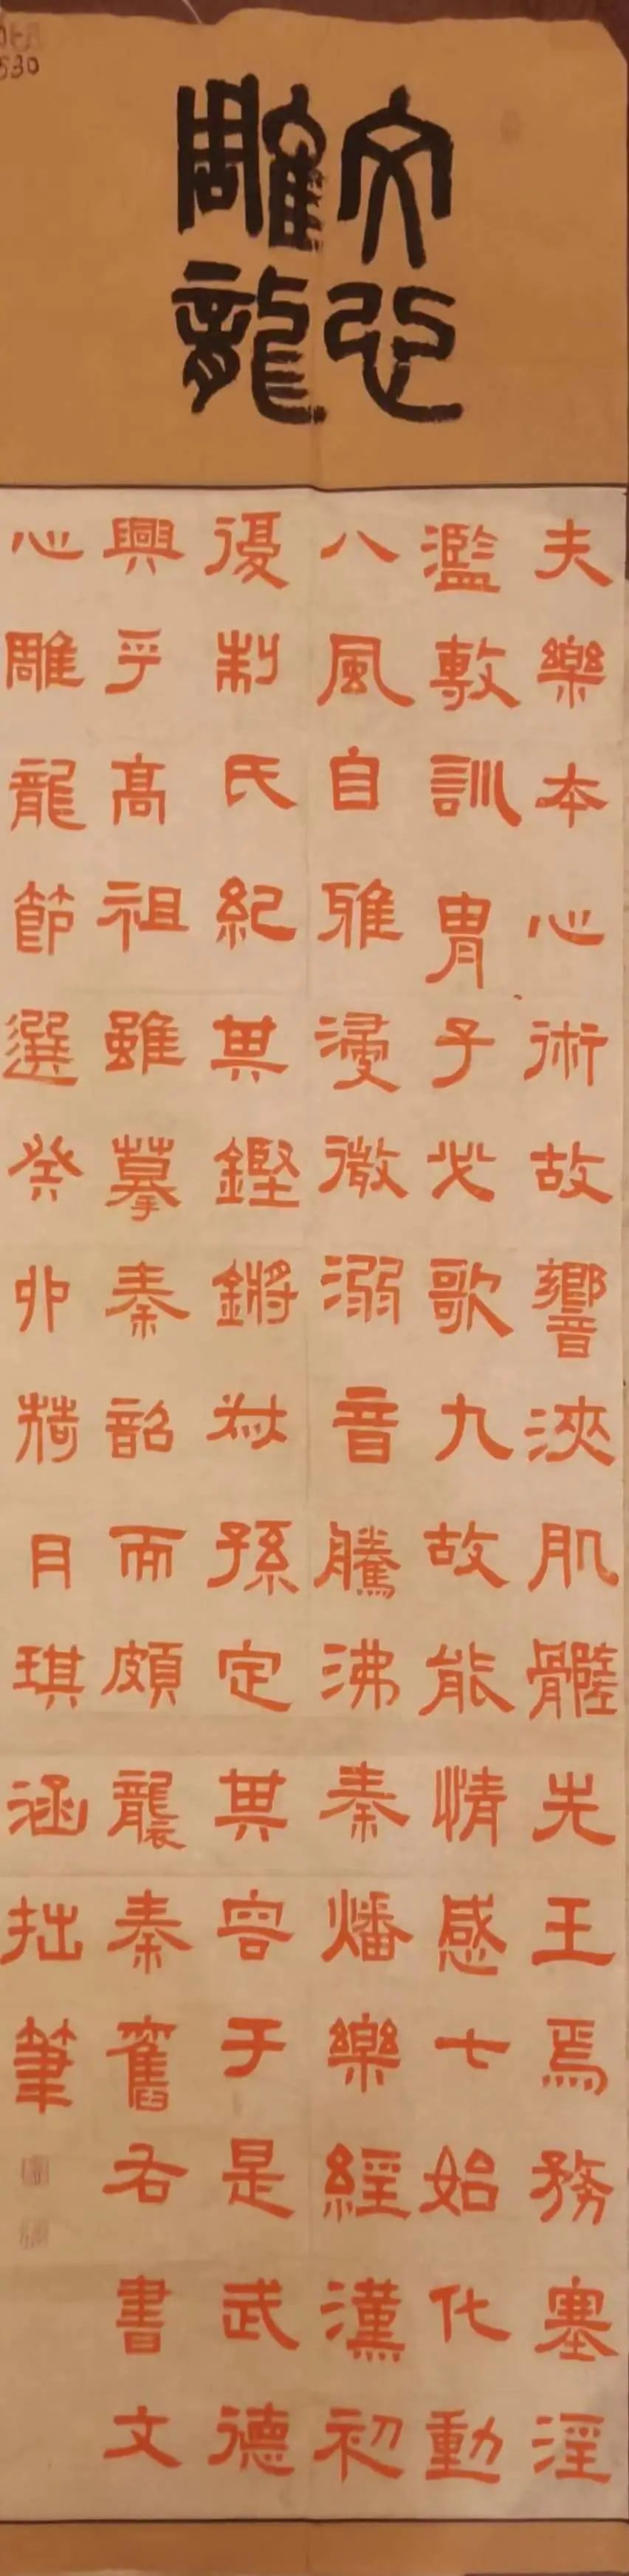 文心
雕龍
夫樂本心術故響浹肌髓先王焉務塞淫
濫敷訓胄子必歌九故能情感七始化動
八風自雅浸微溺音騰沸秦燔樂經漢初
復制氏紀其鏗鏘叔孫定其容于是武德
興乎高祖雖摹秦韶而頗襲秦舊右書文
心雕龍節選癸卯荷月琪涵拙筆
530